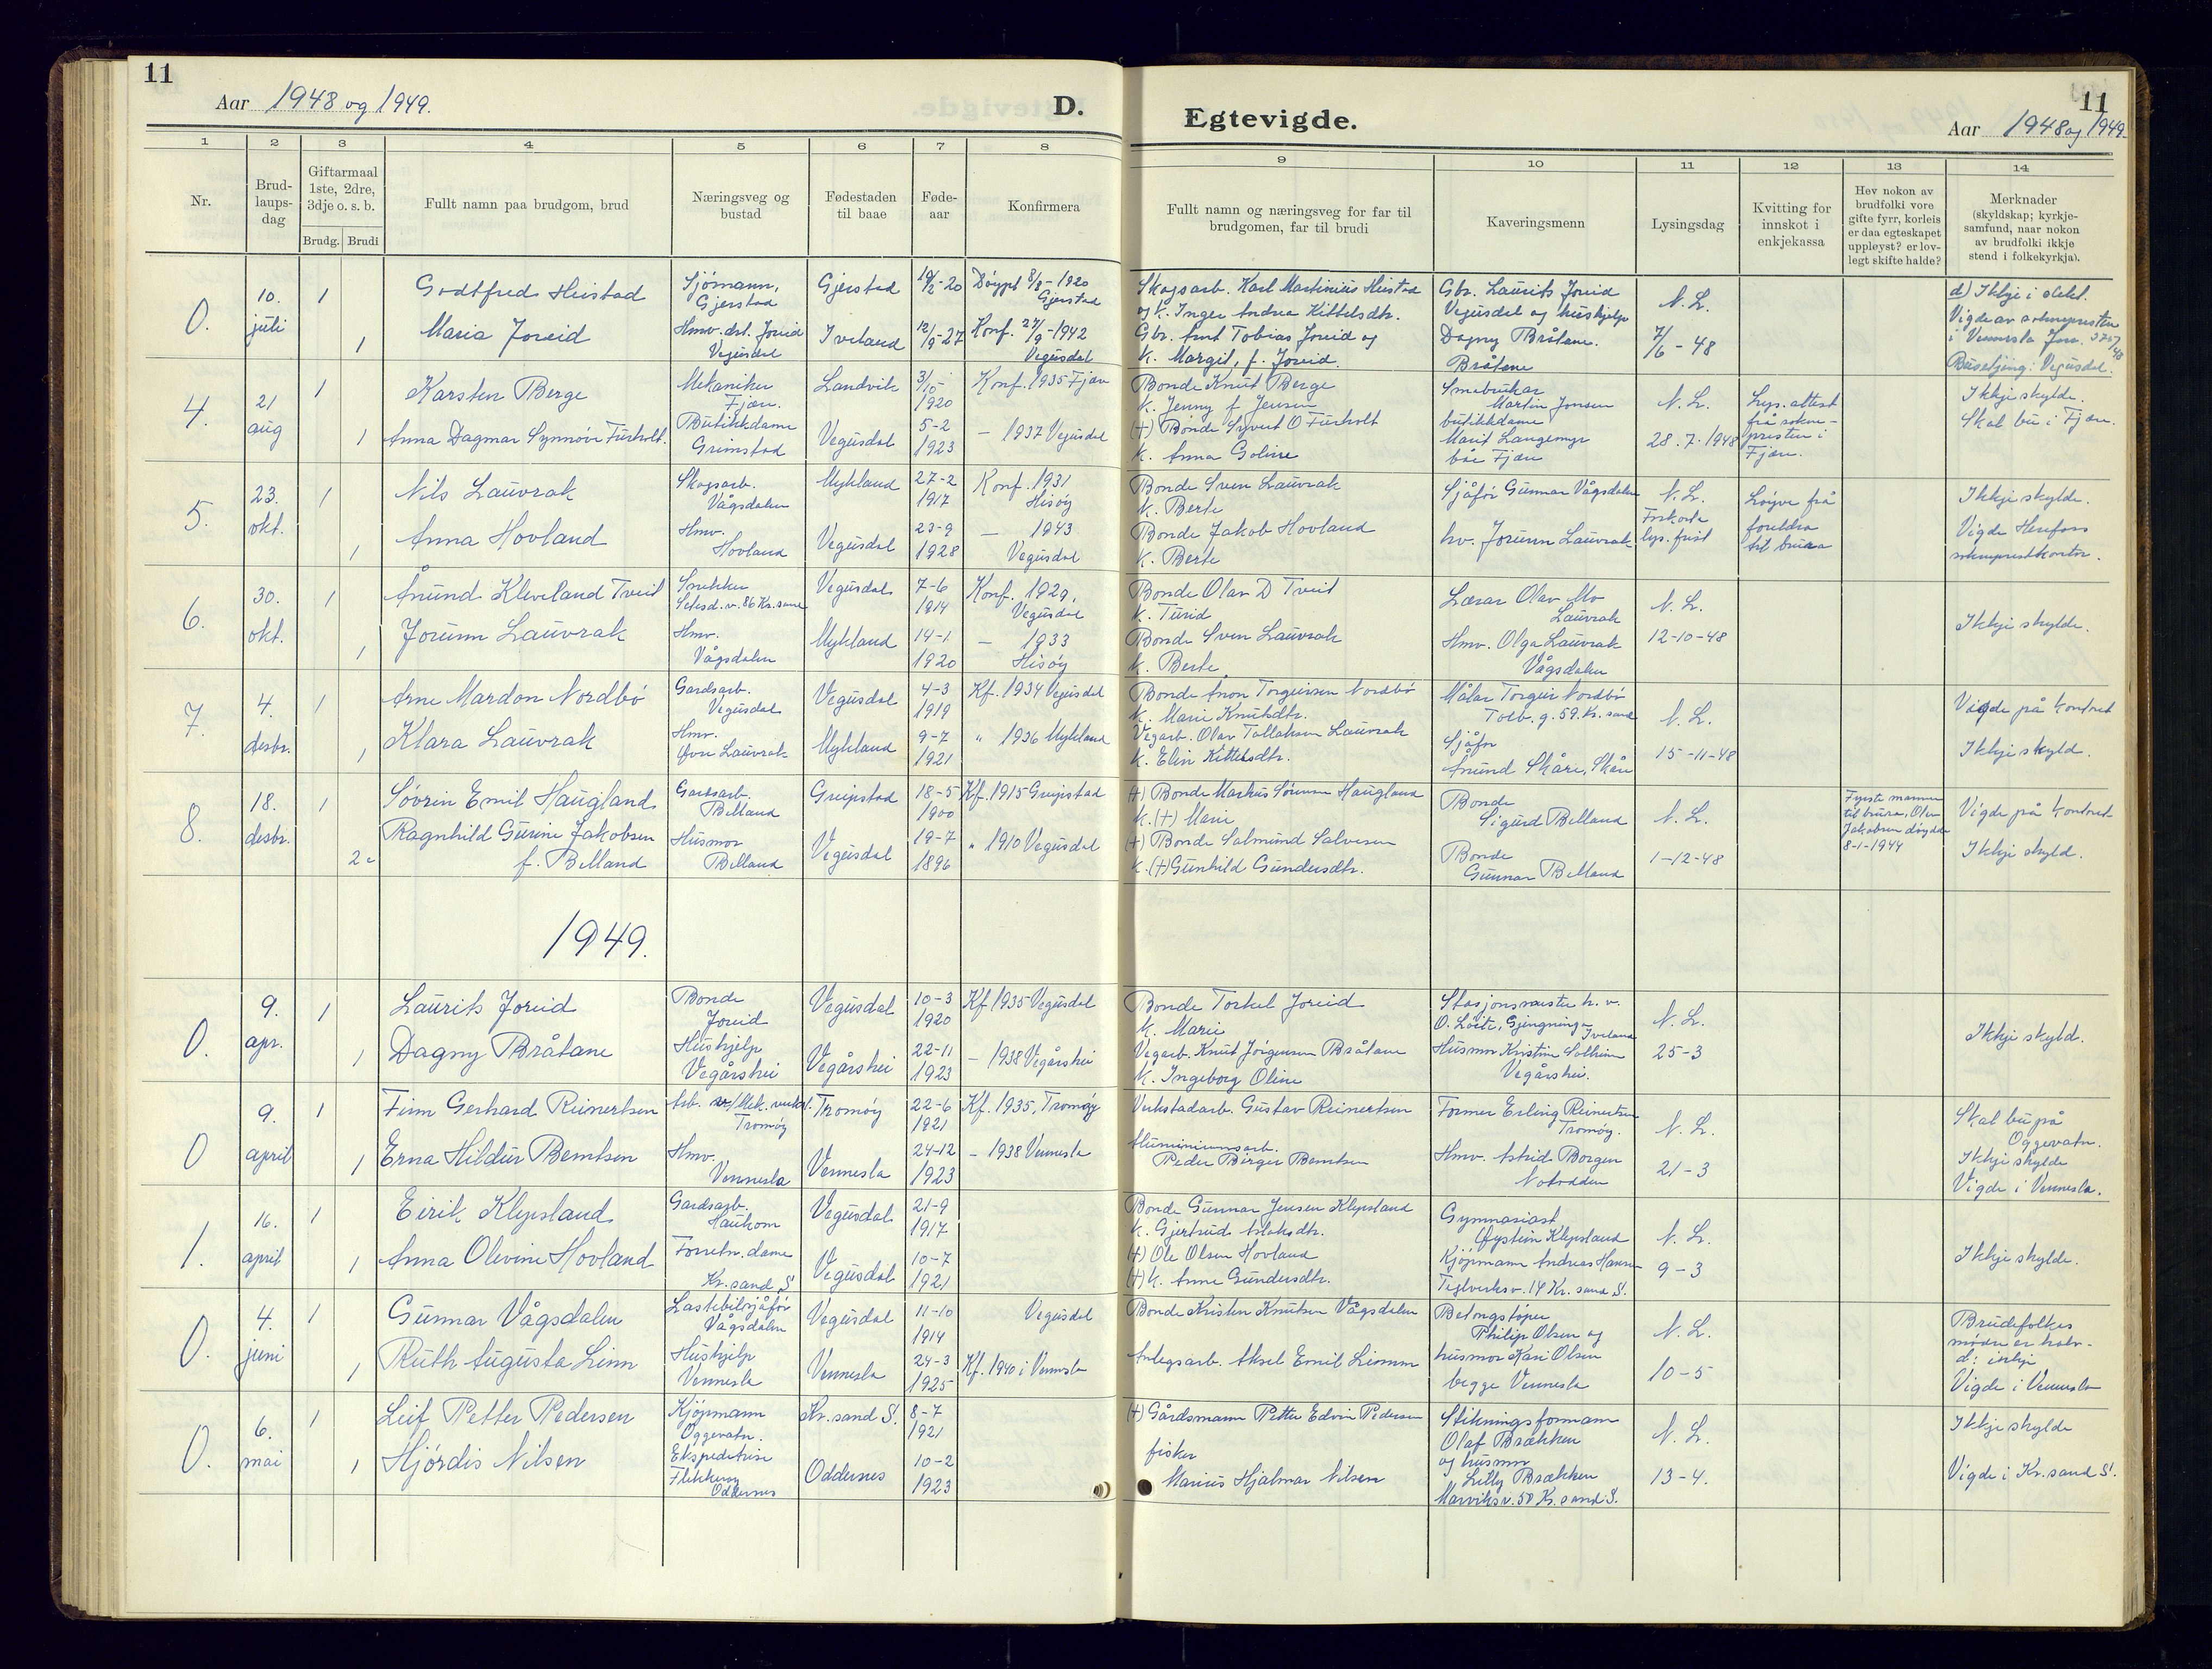 11
Aar 1948 og 1949.
D.
1 2 3 4 5 6 7 8
Nr.
Brud-
laups-
dag
Giftarmaal
1ste, 2dre,
3dje o. s. b.
Brudg. Brudi
Fullt namn paa brudgom, brud
Næringsveg og
bustad
Fødestaden
til baae
Føde-
aar
Konfirmera
0.
10.
juli
1
1
Godtfred Hustad
Maria Joreid
Sjömann,
Gjerstad
Hmv. dtr. Joreid
Vegusdal
Gjerstad
Iveland
12/9-27
Döypt 8/8-1920
Gjerstad
Konf. 27/9-1942
Vegusdal
4.
21
aug
1
1
Karsten Berge
Anna Dagmar Synnöve Furholt.
Mekaniker
Fjære.
Butikkdame
Grimstad
Landvik
Vegusdal
3/10
1920
5-2
1923
Konf. 1935 Fjære
— 1937 Vegusdal
5.
23.
okt.
1
1
Nils Lauvrak
Anna Hovland
Skogsarb.
Vågsdalen
Hmv.
Hovland
Mykland
Vegusdal
27-2
1917
23-9
1928
Konf. 1931
Hisöy
— 1943
Vegusdal
6.
30.
okt.
1
1
Ånund Kleveland Tveit
Jorunn Lauvrak
Snekker
Setesd.v. 86 Kr.sand
Hmv.
Vågsdalen
Vegusdal
Mykland
7-6
1914
14-1
1920
Konf. 1929,
Vegusdal
— 1933
Hisöy
7.
4.
desbr.
1
1
Arne Mardon Nordbö
Klara Lauvrak
Gardsarb.
Vegusdal
Hmv.
Øvre Lauvrak
Vegusdal
Mykland
4-3
1919
9-7
1921
Kf. 1934 Vegusdal
" 1936 Mykland
8.
18.
desbr.
1
2
Sövrin Emil Haugland
Ragnhild Gurine Jakobsen
f. Belland
Gardsarb.
Belland
Husmor
Belland
Greipstad
Vegusdal
18-5
1900
19-7
1896
Kf. 1915 Greipstad
" 1910 Vegusdal
1949.
0.
9.
apr.
1
1
Laurits Joreid
Dagny Bråtane
Bonde
Joreid
Hushjelp
Vegårshei
Vegusdal
Vegårshei
10-3
1920
22-11
1923
Kf. 1935 Vegusdal
— 1938 Vegårshei
0
9.
april
1
1
Finn Gerhard Reinertsen
Erna Hildur Berntsen
Tromöy
Hmv.
Vennesla
Tromöy
Vennesla
22-6
1921
24-12
1923
Kf. 1935, Tromøy
— 1938 Vennesla
1.
16.
april
1
1
Eirik Klepsland
Anna Olevine Hovland
Gardsarb.
Hauhom
Forretn. dame
Kr.sand S
Vegusdal
Vegusdal
21-9
1917
10-7
1921
0.
4.
juni
1
1
Gunnar Vågsdalen
Ruth Augusta Linn
Lastebilsjåför
Vågsdalen
Hushjelp
Vennesla
Vegusdal
Vennesla
11-10
1914
24-3
1925
Vegusdal
Kf. 1940 i Vennesla
0.
6.
mai
1
1
Leif Petter Pedersen
Hjördis Nilsen
Kjöpmann
Oggevatn.
Ekspeditrise
Flekkeröy
Oddernes
Kr.sand S.
Oddernes
8-7
1921
10-2
1923
Egtevigde.
11
Aar 1948 og 1949.
9 10 11 12 13 14
Fullt namn og næringsveg for far til
brudgomen, far til brudi
Kaveringsmenn
Lysingsdag
Kvitting for
innskot i
enkjekassa
Hev nokon av
brudfolki vore
gifte fyrr, korleis
er daa egteskapet
uppløyst? er lov-
legt skifte halde?
Merknader
(skyldskap; kyrkje-
samfund, naar nokon
av brudfolki ikkje
stend i folkekyrkja).
Skogsarb. Karl Martinius Hustad
og k. Inger Andrea Kittelsdtr.
Gbr. Arnt Tobias Joreid og
k. Margit, f. Joreid.
Gbr. Laurits Joreid
Vegusdal og hushjelp
Dagny Bråtane.
Bråtene
N. L.
7/6-48
d) Ikkje i slekt.
Vigde av soknepresten
i Vennesla
Busetjing: Vegusdal.
Bonde Knut Berge
k. Jenny f Jensen
(+) Bonde Syvert O Furholt
k. Anna Goline
Småbrukar
Martin Jensen
butikkdame
Marit Langemyr
båe Fjære
N. L.
28.7.1948
Lys. attest
frå sokne-
presten i
Fjære.
Ikkje skylde.
Skal bu i Fjære.
Bonde Sven Lauvrak
k. Berte
Bonde Jakob Hovland
k. Berte
Sjåför Gunnar Vågsdalen
hv. Jorunn Lauvrak
N. L.
Forkorta
lys. frist
Löyve frå
foreldra
til brura
Ikkje skylde.
Vigde Herefoss
sokneprestkontor.
Bonde Olav D Tveit
k. Turid
Bonde Sven Lauvrak
k. Berte
Lærar Olav Mo
Lauvrak
Hmv. Olga Lauvrak
Vågsdalen
N. L.
12-10-48
Ikkje skylde.
Bonde Anon Torgeirsen Nordbö
k. Marie Knutsdtr.
Vegarb. Olav Tallaksen Lauvrak
k. Elin Kittelsdtr.
Målar Torgeir Nordbö
Tolb. g. 59. Kr. sand
Sjåför
Ånund Skåre, Skåre
N. L.
15-11-48
Vigde på kontoret
Ikkje skyld.
(+) Bonde Markus Sörensen Haugland
k. (+) Marie
(+) Bonde Salmund Salvesen
k. (+) Gunhild Gundersdtr.
Bonde
Sigurd Belland
Bonde
Gunnar Belland
N. L.
1-12-48
Fyrste mannen
til brura, Olav
Jakobsen döydde
8-1-1944
Vigde på kontoret
Ikkje skyld.
Bonde Torkel Joreid
k. Marie
Vegarb. Knut Jörgensen Bråtane
k. Ingeborg Oline
Stasjonsmester h. v.
O. Löite, Gjengninge Iveland
Husmor Kristine Solheim
Vegårshei.
N. L.
25-3
Ikkje skyld.
Verkstadarb. Gustav Reinertsen
Aluminiumsarb.
Peder Birger Berntsen
Former Erling Reinertsen
Tromöy.
Hmv. Astrid Borgen
Notodden
N. L.
21-3
Skal bu på
Oggevatn.
Ikkje skylde
Vigde i Vennesla.
Bonde Gunnar Jensen Klepsland
k. Gjertrud Aslaksdtr.
(+) Ole Olsen Hovland
(+) k. Anne Gundersdtr.
Gymnasiast
Øystein Klepsland
Kjöpmann Andreas Hansen
Teglverksv. 14 Kr. sand S.
N. L.
9-3
Ikkje skylde.
Bonde Kristen Knutsen Vågsdalen
Anlegsarb. Aksel Emil Linn
Betongstöper
Philip Olsen og
husmor Kari Olsen
begge Vennesla
N. L.
10-5
Brudefolkes
mödre er halv-
Vigde i Vennesla
(+) Gårdsmann Petter Edvin Pedersen
fisker
Marius Hjalmar Nilsen
Stikningsformann
Olaf Brækken
og husmor
Lilly Brækken
Marviksv. 50 Kr. sand S.
N. L.
13-4.
Ikkje skylde
Vigde i Kr.sand S.